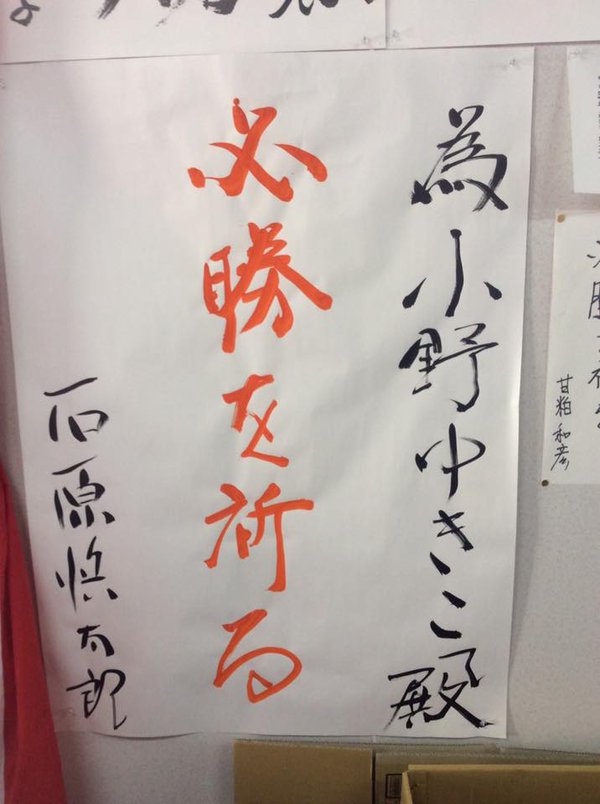 為小野ゆきこ殿
必勝を祈る
石原慎太郎
甘粕和彦